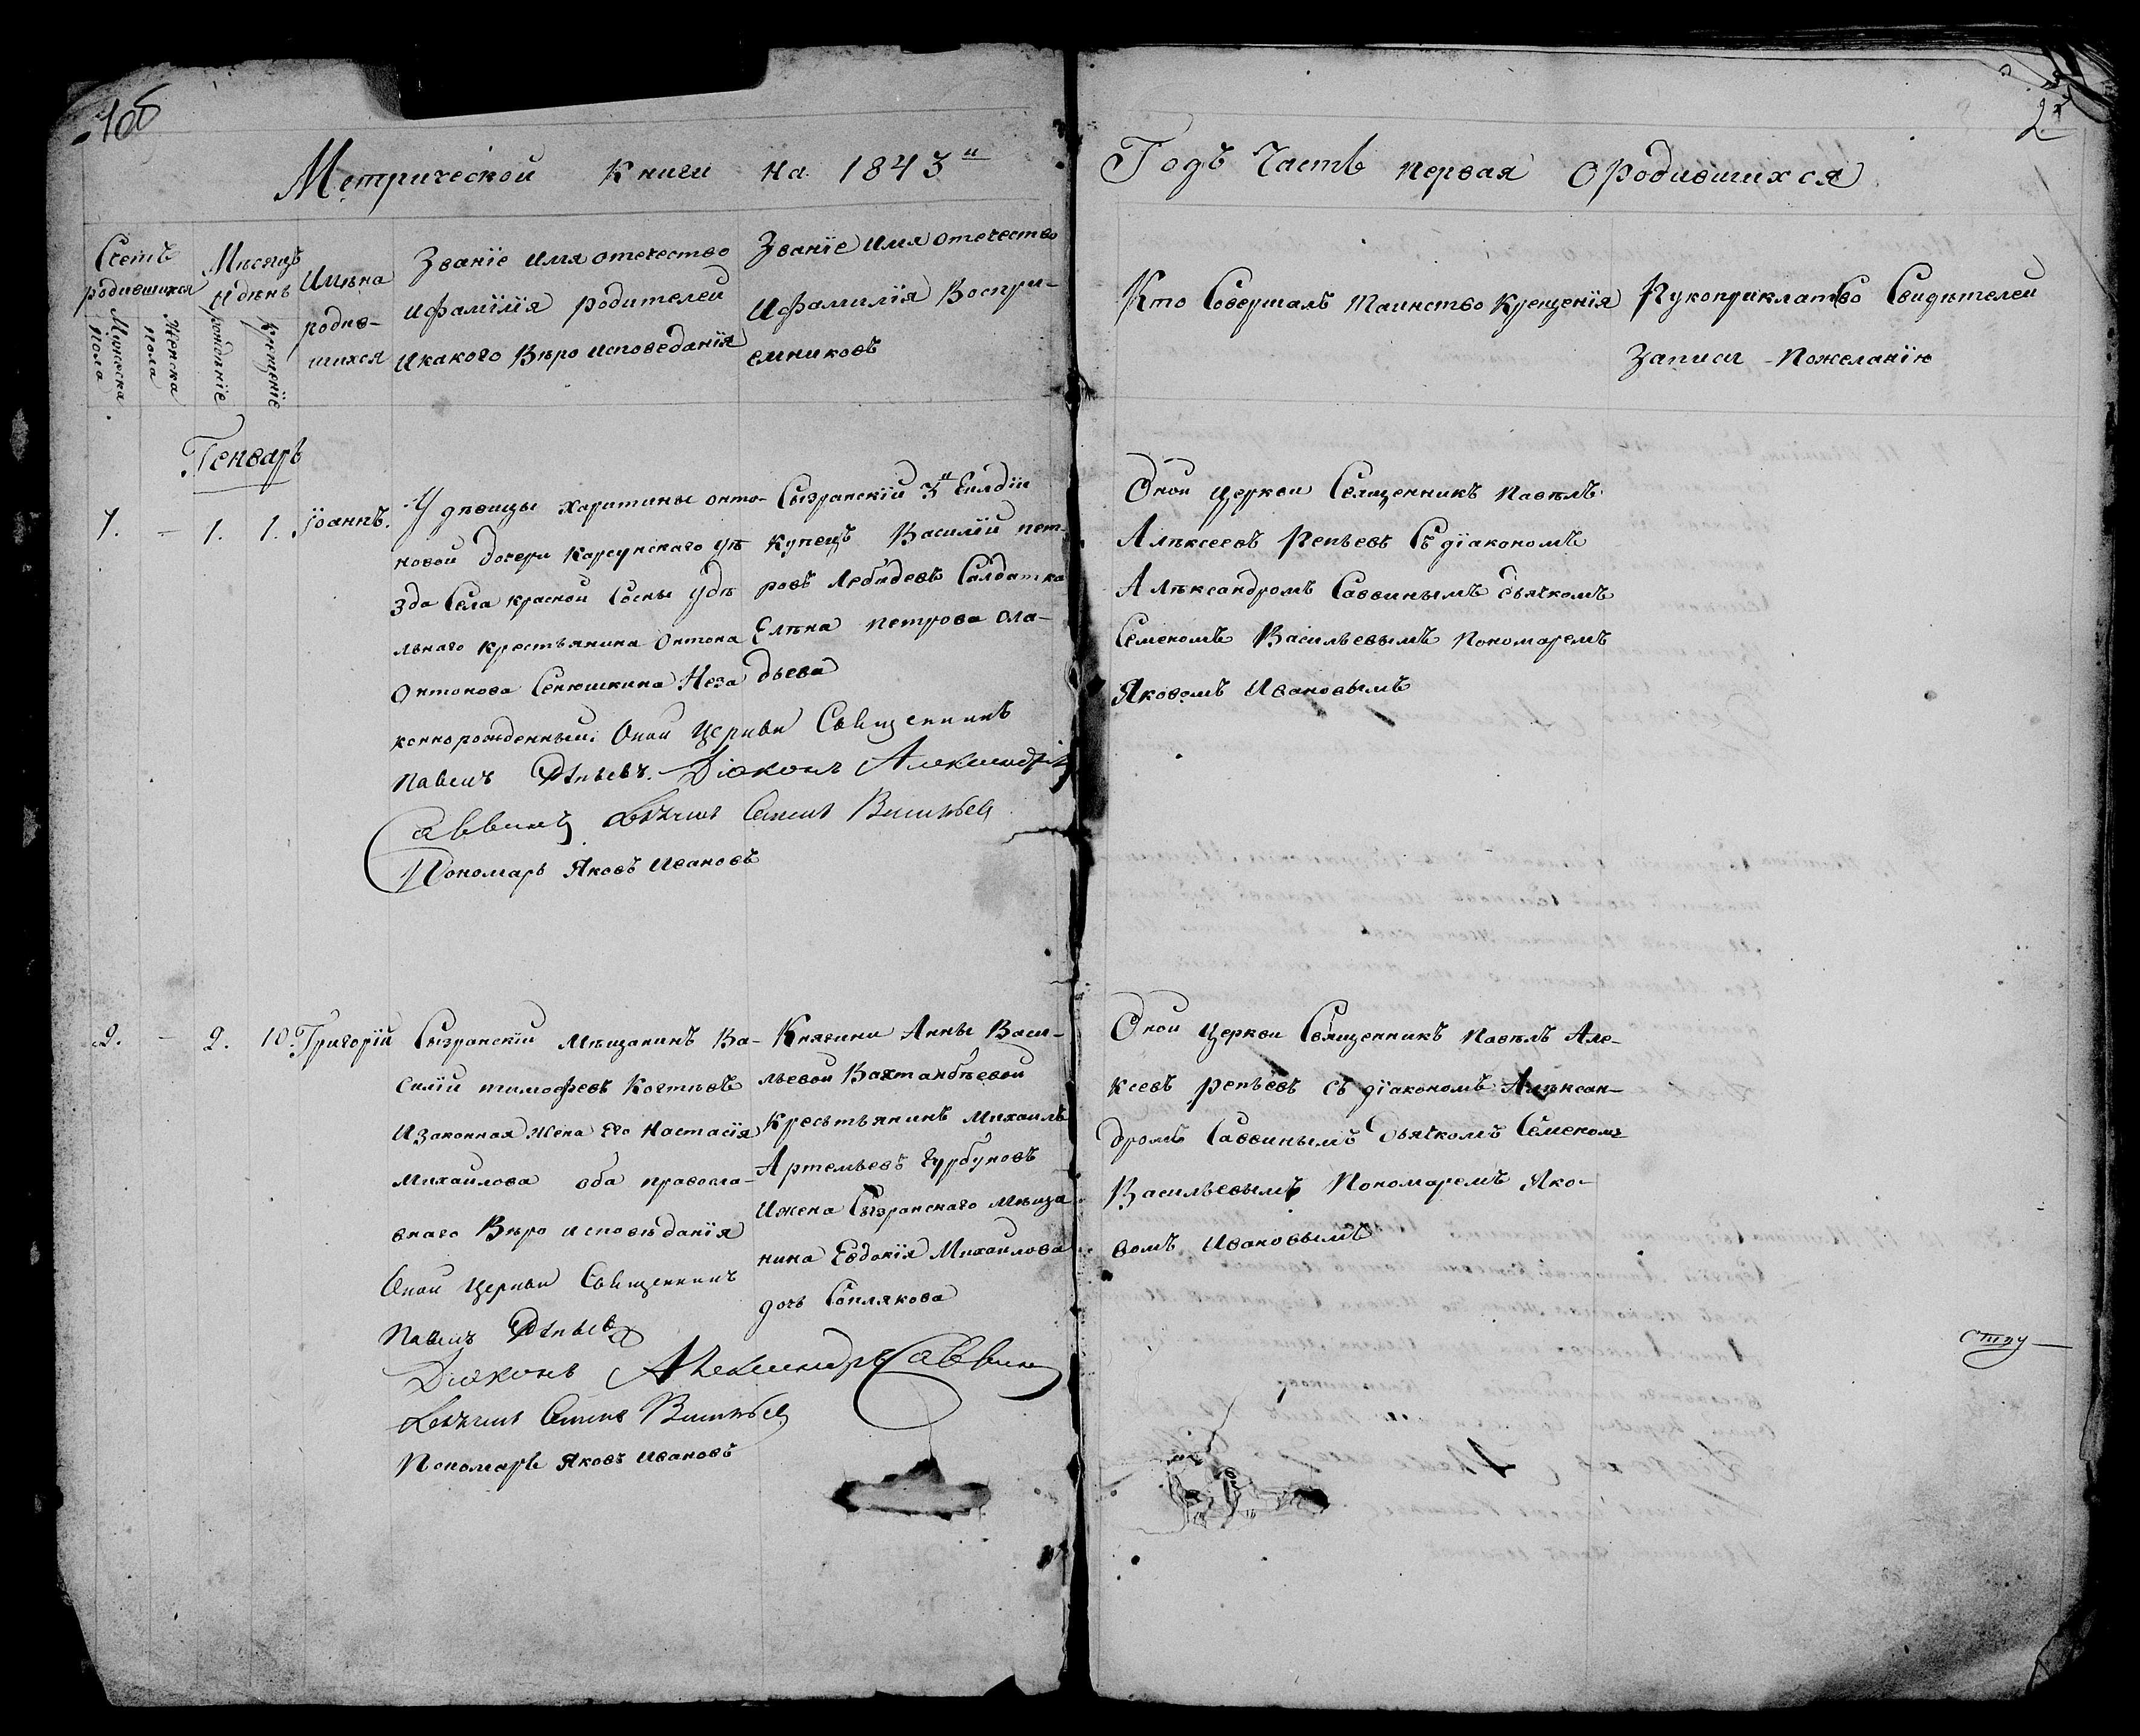 1об
2
Метрической Книги на 1843й
Годъ Часть первая Ородившихся
Счетъ родившихся
Мужеска пола
Женска пола
Мѣсяцъ и день
рожденіе
крещеніе
Имяна родив-
шихся
Званіе имя отечество
ифамілія родителей
икакого Вѣро исповеданія
Званіе имя отечество
ифамилія Воспри-
емниковъ
Кто Совершалъ таинство крещенія
Рукоприклатво Свидѣтелей
Записи Пожеланію
Генварь
1. - 1. 1. Іоаннъ.
У дѣвицы харитины онто-
новой дочери Карсунскаго уѣ
зда Села красной Сосны удѣ
льнаго крестьянина Онтона
Онтонова Сенюшкина Неза
коннорожденный. Оной Церкви Священникъ
Павелъ Репьевъ. Діаконъ Александръ
Саввинъ Дьячекъ Семенъ Васильевъ
Пономарь Яковъ Ивановъ
Сызранскій 3й Гилдіи
Купецъ Василій пет-
ровъ Лебедевъ Салдатка
Елѣна петрова Ола-
дьева
Оной церкви Священникъ Павѣлъ
Алѣксеевъ Репьевъ Съ діакономъ
Алѣксандромъ Саввинымъ дьячкомъ
Семеномъ Васильевымъ Пономаремъ
Яковомъ Ивановымъ
2. - 2. 10. Григорій
Сызранскій Мѣщанинъ Ва-
силій тимофеевъ
Изаконная Жена Его Настасія
Михайлова оба правосла-
внаго Вѣро исповѣданія
Оной Церкви Священникъ
Павелъ Репьевъ
Діаконъ Александръ Саввинъ
Дьячекъ Семенъ Васильевъ
Пономарь Яковъ Ивановъ
Княгини Анны Васи-
льевой Вахтанбѣевой
Кресьтьянинъ Михаилъ
Артемьевъ
Ижена Сызранскаго Мѣща
нина Евдокія Михайлова
дочь Соплякова
Оной Церкви Священникъ Павѣлъ Але-
ксеевъ репьевъ съ діакономъ Алѣксан-
дромъ Саввинымъ Дьячкомъ Семеномъ
Васильевымъ Пономаремъ Яко-
вомъ Ивановымъ